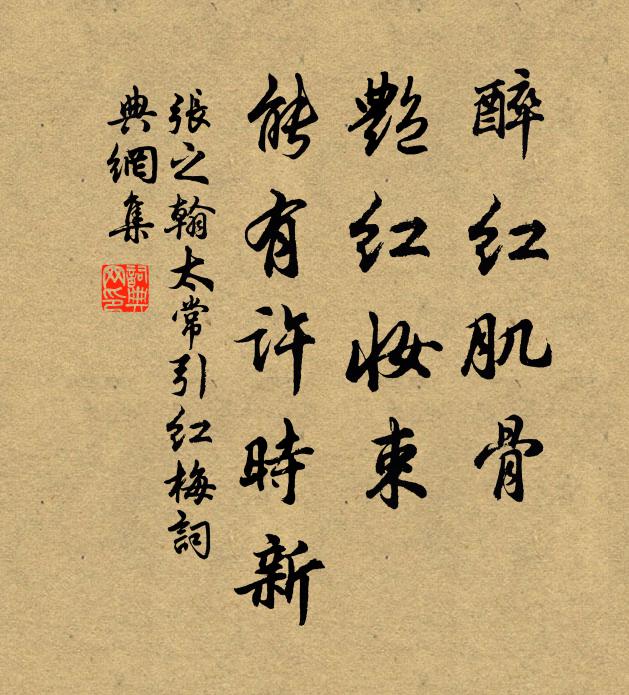 醉红肌骨
艷红妝束
能有许時新
張之翰太常引红梅詞
典網集
詞典网印